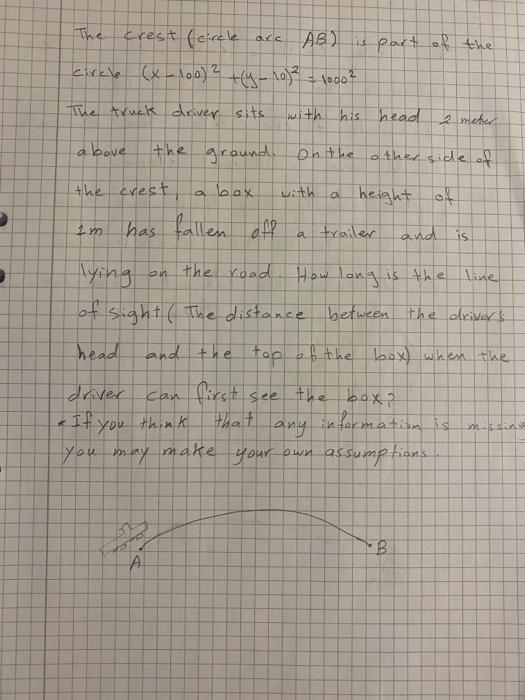 The crest (circle arc AB) is part of the
circle (x-100)² + (y-10)² = 1000²
The truck driver sits with his head 2 meter
above the ground. On the other side of
the crest, a box with a height of
1m has fallen off a trailer and is
lying on the road. How long is the line
of sight (The distance between the driver's
head and the top of the box) when the
driver can first see the box?
* If you think that any information is missing
you may make your own assumptions.
A
B